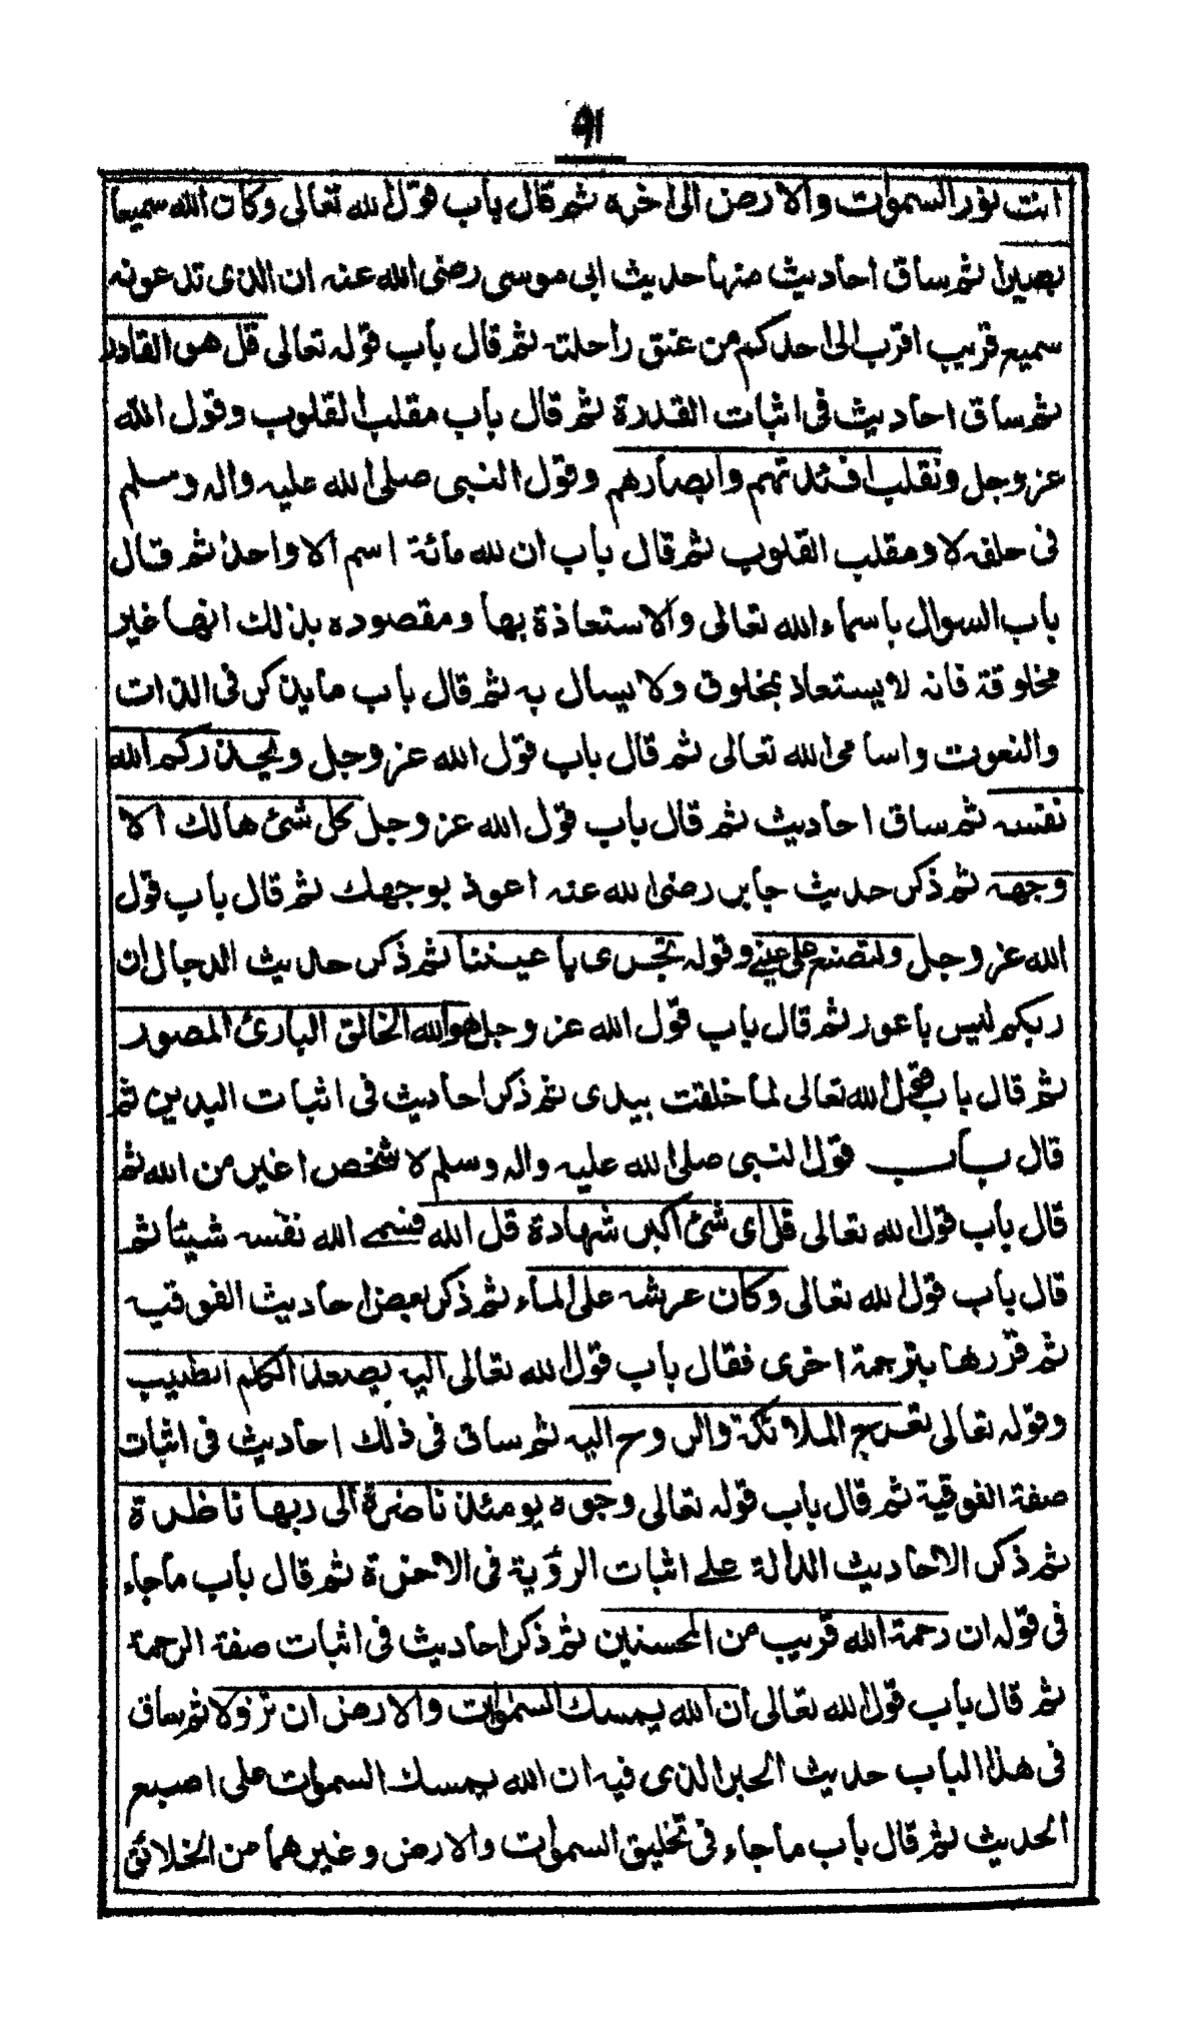 ٩١
انت نور السموات والارض الى اخره ثم قال باب قول الله تعالى وكان الله سميعا
بصيرا ثم ساق احاديث منها حديث ابى موسى رضى الله عنه ان الذى تدعونه
سميع قريب اقرب الى احدكم من عنق راحلته ثم قال باب قوله تعالى قل هو القادر
ثم ساق احاديث فى اثبات القدرة ثم قال باب مقلب القلوب وقول الله
عز وجل ونقلب افئدتهم وابصارهم وقول النبى صلى الله عليه واله وسلم
فى حلفه لا ومقلب القلوب ثم قال باب ان لله مائة اسم الا واحدا ثم قال
باب السوال باسماء الله تعالى والاستعاذة بها ومقصوده بذلك انها غير
مخلوقة فانه لا يستعاذ بمخلوق ولا يسال به ثم قال باب ما يذكر فى الذات
والنعوت واسامى الله تعالى ثم قال باب قول الله عز وجل ويحذركم الله
نفسه ثم ساق احاديث ثم قال باب قول الله عز وجل كل شئ هالك الا
وجهه ثم ذكر حديث جابر رضى الله عنه اعوذ بوجهك ثم قال باب قول
الله عز وجل ولتصنع على عينے وقوله تجرى باعيننا ثم ذكر حديث الدجال ان
ربكم ليس باعور ثم قال باب قول الله عز وجل هو الله الخالق البارئ المصور
ثم قال باب قول الله تعالى لما خلقت بيدى ثم ذكر احاديث فى اثبات اليدين ثم
قال باب قول النبى صلى الله عليه واله وسلم لا شخص اغير من الله ثم
قال باب قول الله تعالى قل اى شئ اكبر شهادة قل الله فسمے الله نفسه شيئا ثم
قال باب قول الله تعالى وكان عرشه على الماء ثم ذكر بعض احاديث الفوقية
ثم قررها بترجمة اخرى فقال باب قول الله تعالى اليه يصعد الكلم الطيب
وقوله تعالى تعرج الملائكة والروح اليه ثم ساق فى ذلك احاديث فى اثبات
صفة الفوقية ثم قال باب قوله تعالى وجوه يومئذ ناضرة الى ربها ناظرة
ثم ذكر الاحاديث الدالة علے اثبات الرؤية فى الاخرة ثم قال باب ما جاء
فى قوله ان رحمة الله قريب من المحسنين ثم ذكر احاديث فى اثبات صفة الرحمة
ثم قال باب قول الله تعالى ان الله يمسك السموات والارض ان تزولا ثم ساق
فى هذا الباب حديث الحبر الذى فيه ان الله يمسك السموات على اصبع
الحديث ثم قال باب ما جاء فى تخليق السموات والارض وغيرهما من الخلائق